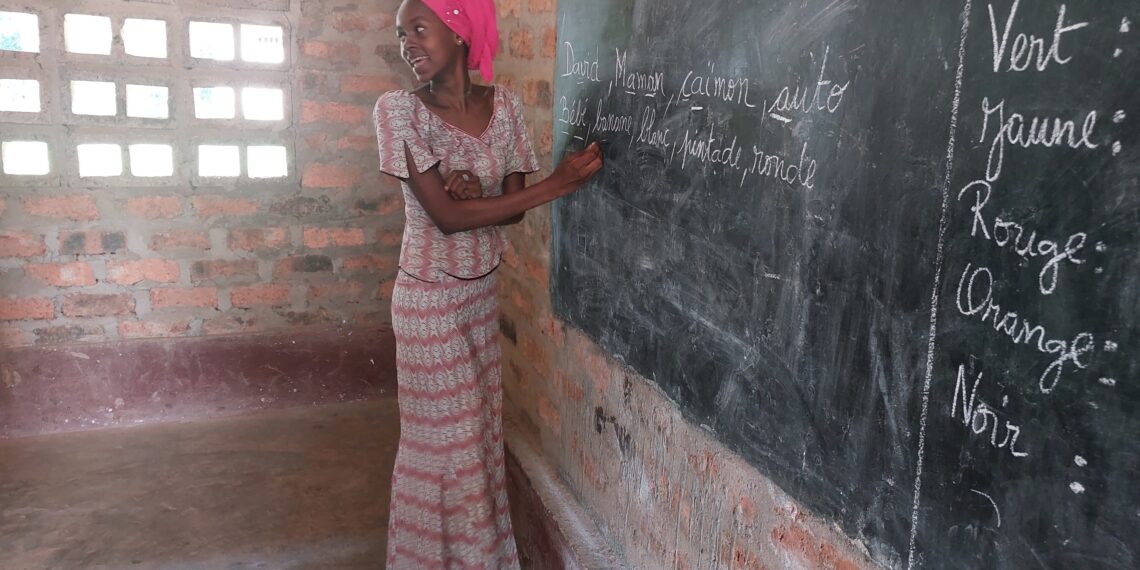 David, Maman, çaïmon, auto
Bébé, banane, blanc, pintade, ronde
Vert :
Jaune :
Rouge :
Orange :
Noir :